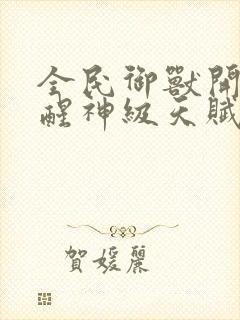 全民御獸開
醒神級天賦
賀媛麗